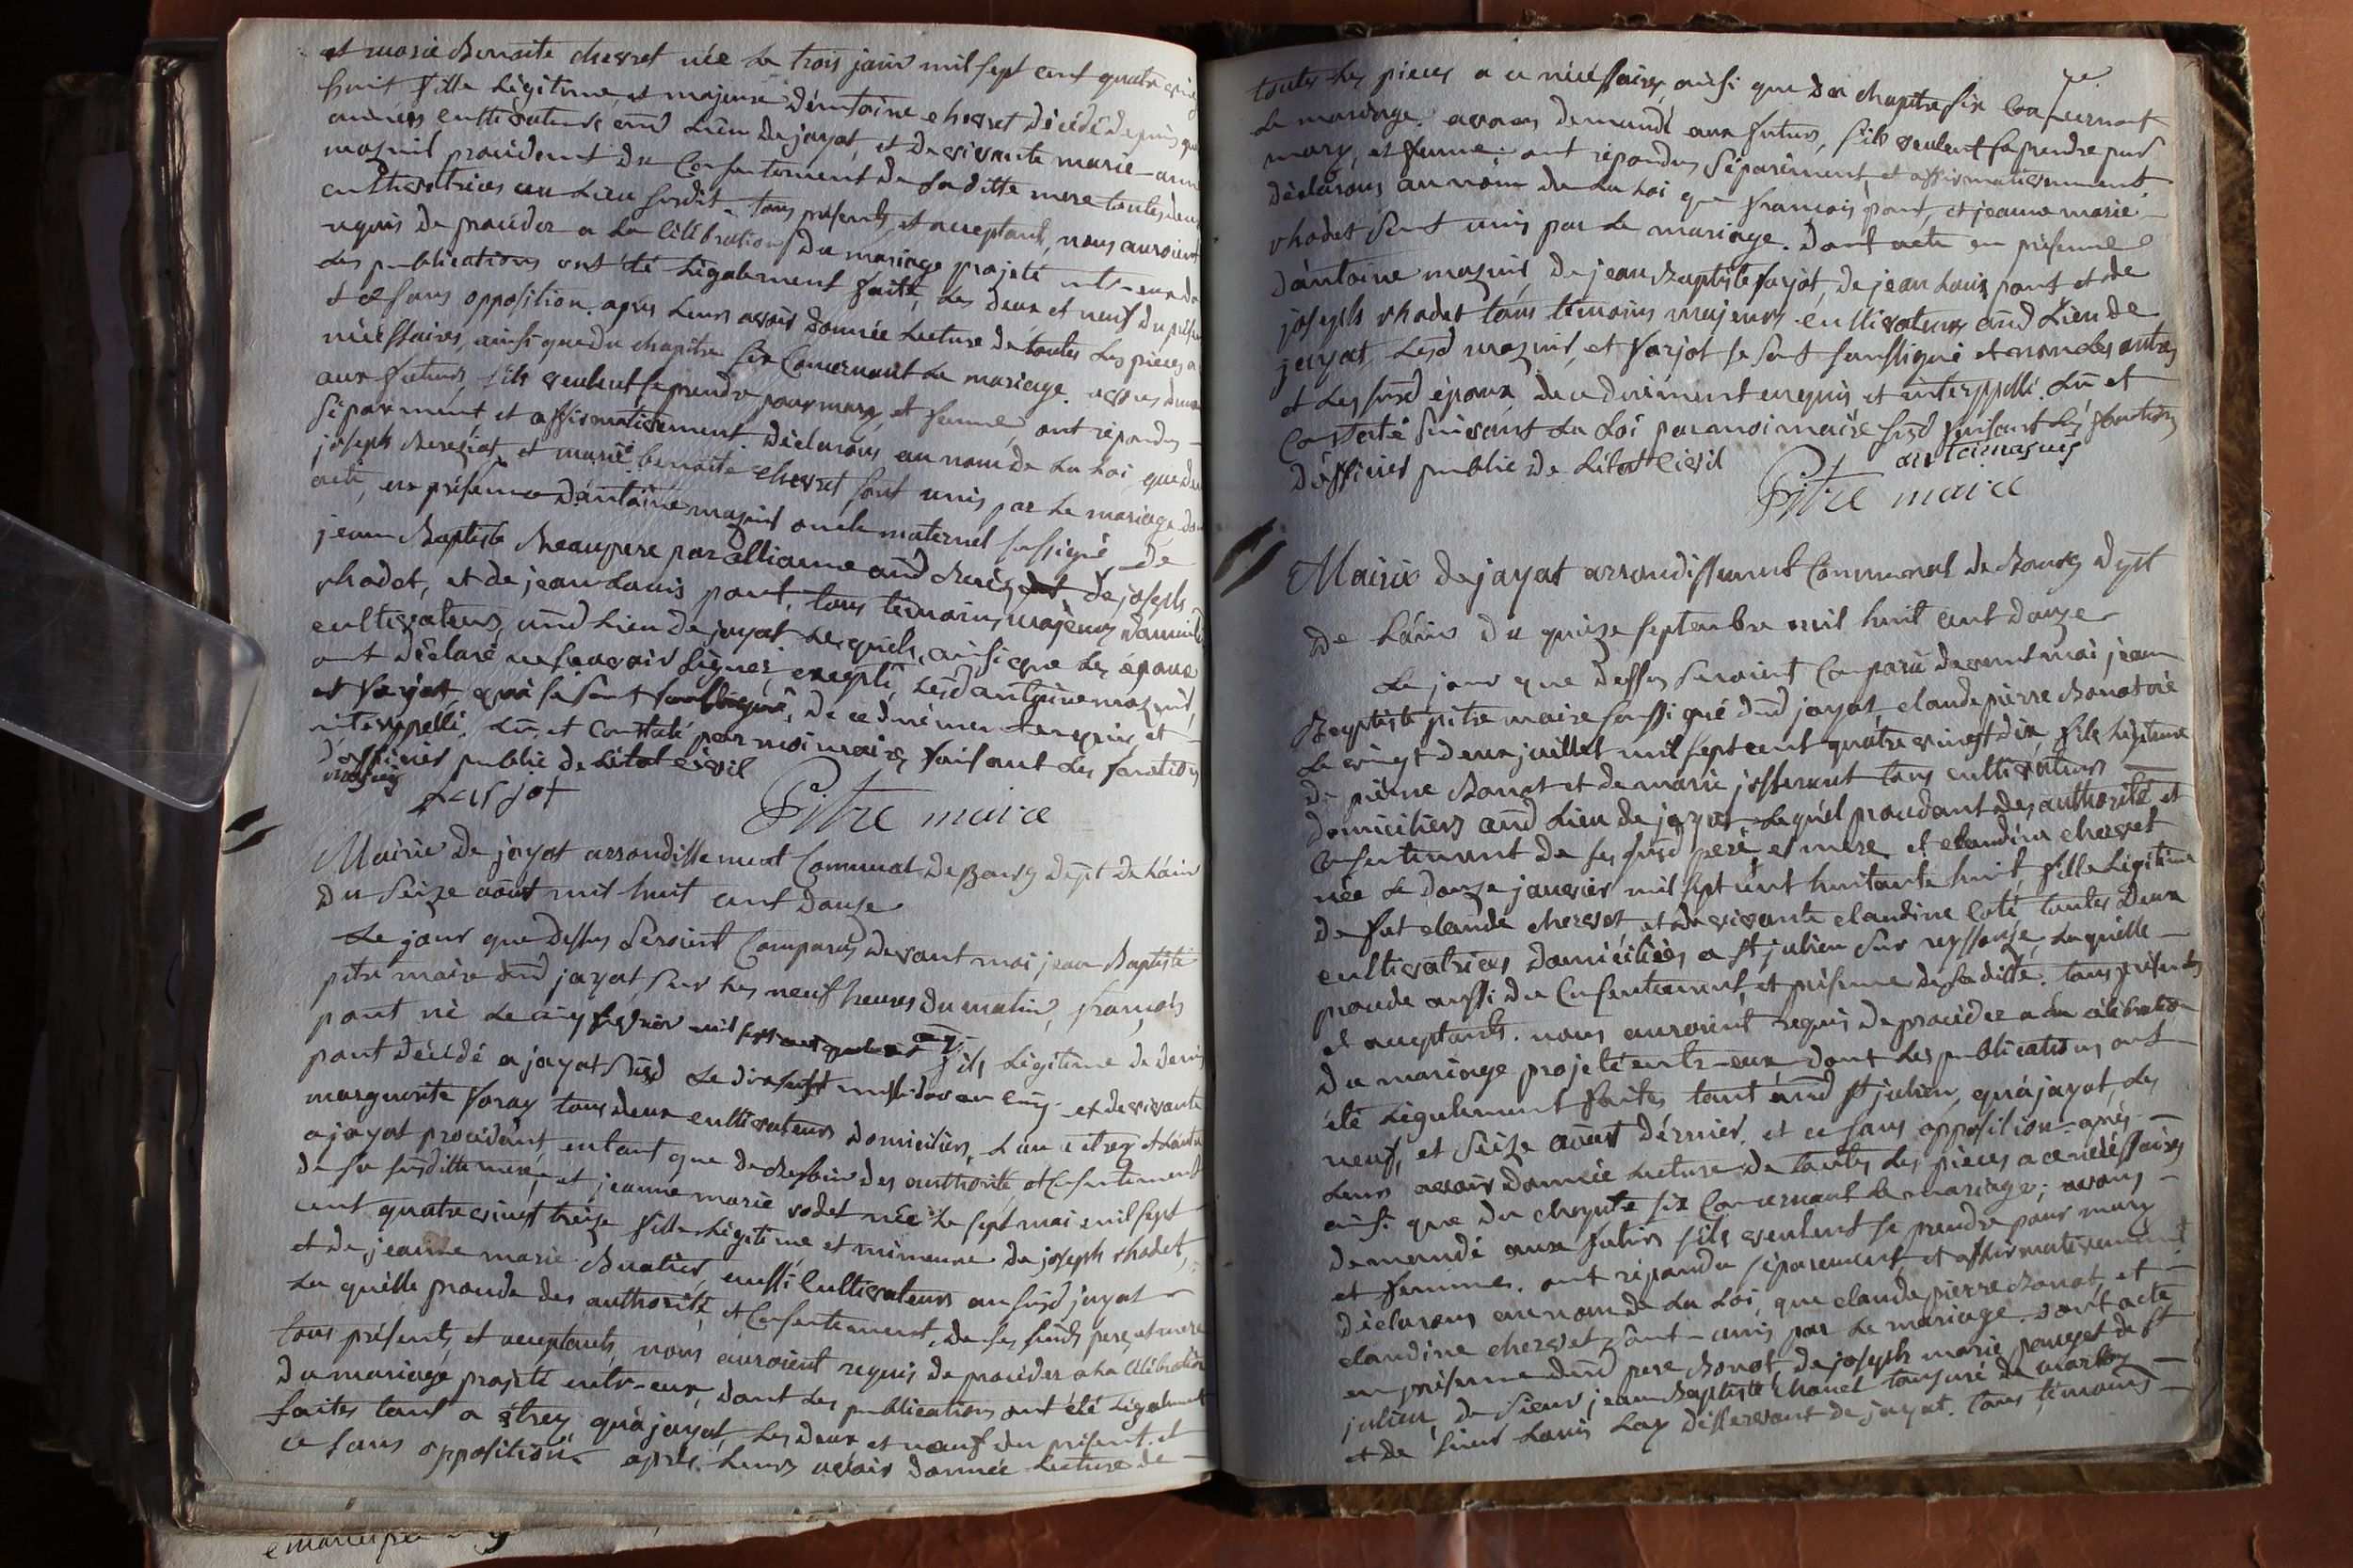 et marie Benoite chevret née Le trois janv mil sept cent quatre ving
huit fille Légitime, et majeure d'entoine chevret décédé depuis
années cultivateur aud Lieu de jayat, et de vivante marie-ann
mazuit procédent du Consentement de sa ditte mere toutes deux
cultivatrices au Lieu susdit. tous présents, et acceptants, nous auroient
requis de procéder a La Célébration du mariage projeté entr-eux do
Les publications ont été Légalement faite, Les deux et neuf du prése
& ce sans opposition. apres Leurs avoir donnée Lecture de toutes Les pieces a
nécéssaires, ainsi que du chapitre six Concernant Le mariage. avons deman
aux futurs, s'ils veulent se prendre pour mary, et femme, ont répondu
séparément, et affirmativement. déclarons au nom de La Loi que
joseph et marie benoite chevret sont unis par Le mariage, don
acte, en présence d'antoine mazuit oncle maternel sussigné, de
jean Baptiste Beaupere par alliance aud de joseph
rhodet, et de jean Louis pont, tous témoins, majeurs domicil
cultivateurs, aud Lieu de jayat. Lesquels, ainsi que Les époux
ont déclaré ne sçavoir signer, excepté, Lesd antoine mazuit,
et farjot, qui se sont soussigné, de ce duement enquis, et
interppéllé. Lu, et Constaté par moi maire, faisant Les fonctions
d'officier public de L'état Civil
mazuit
farjot
Pitre maire
Mairie de jayat arrondissement Communal de Bourg dept de L'ain
du seize août mil huit cent douze
Le jour que dessus seroient Comparus devant moi jean Baptiste
pitre maire dud jayat sur Les neuf heures du matin, françois
pont né Le cinq fevrier mil sept fils Légitime de denis
pont décédé a jayat susd Le dixsept messidor an cinq. et de vivante
marguerite foray tous deux cultivateurs domiciliés, L'un a etrez et L'autre
a jayat procédant, entant que de besoin des authorité, et Consentement
de sa susditte mere, et jeanne marie rodet née Le sept mai mil sept
cent quatre vingt treize fille Légitime et mineure de joseph rhodet,
et de jeanne marie Buatier, aussi Cultivateurs au susd jayat
La quélle procede des authorité, et Consentement, de ses susds pere, et mere
tous présents, et acceptants, nous auroient requis de procéder a La Célébration
du mariage projeté entr-eux, dont Les publications ont été Légalement
faites tant a étrez, qu'a jayat, Les deux et neuf du présent. et
ce sans opposition. après Leurs avoir donnée Lecture de
toutes Les pieces a ce nécéssaires, ainsi que du chapitre six Concernant
Le mariage. avons demandé aux futurs, s'ils veulent se prendre pour
mary, et femme. ont répondus séparément, et affirmativement.
déclarons au nom de La Loi que françois pont, et jeanne marie
rhodet sont unis par Le mariage. dont acte en présence
d'antoine mazuit, de jean Baptiste farjot, de jean Louis pont et de
joseph rhodet tous témoins majeurs cultivateurs aud Lieu de
jayat, Lesd mazuit, et farjot se sont soussigné et non Les autres
et Les susd époux, de ce duément enquis et interppéllé. Lu et
Constaté suivant La Loi par moi maire susd faisant Les fonctions
d'officier public de L'état Civil
Pitre maire
Mairie de jayat arrondissement Communal de Bourg dept
De L'ain du quinze septembre mil huit cent douze
Le jour que dessus seroient Comparu devant moi jean
Baptiste pitre maire soussigné dud jayat claude pierre Bonat né
Le vingt deux juillet mil sept cent quatre vingt dix, fils Légitime
de pierre Bonat et de marie josserent tous cultivateurs
domiciliers aud Lieu de jayat Lequél procédant des authorité et
Consentement de ses susd pere et mere. et claudine chevret
née Le douze janvier mil sept cent huitante huit, fille Légitime
de fut claude chevret, et de vivante claudine Coté, toutes deux
cultivatrices domiciliées a St julien sur reyssouze, Laquelle
procede aussi du Consentement, et présence de sa ditte. tous présents
et acceptants. nous auroient requis de procéder a La célébration
du mariage projeté entr-eux dont Les publications ont
été Légalement faites tant aud St julien, qu'a jayat, Les
neuf, et seize août dérnier. et ce sans opposition. aprés
Leurs avoir donnée Lecture de toutes Les pieces a ce nécéssaires
ainsi que du chapitre six Concernant Le mariage; avons
demandé aux futurs s'ils veulent se prendre pour mary
et femme. ont répondu séparement, et affirmativement
déclarons au nom de La Loi, que claude pierre Bonat, et
claudine chevret, sont unis par Le mariage. dont acte
en présence dud pere Bonat, de joseph marie pauget de St
julien, de sieur jean Baptiste chanel tonsuré de marboz
et de sieur Louis Lay désservant de jayat. tous témoins